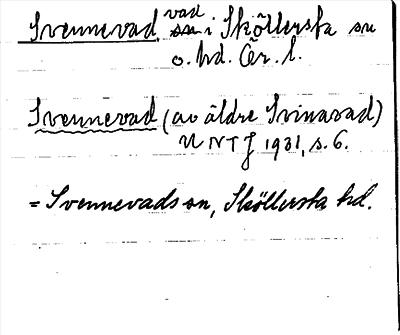 Svennevad, vad i Sköllersta sn
o. hd. Ör. l.
Svennevad (av äldre Svinavad)
UNTJ 1931, s. 6.
= Svennevads sn, Sköllersta hd.